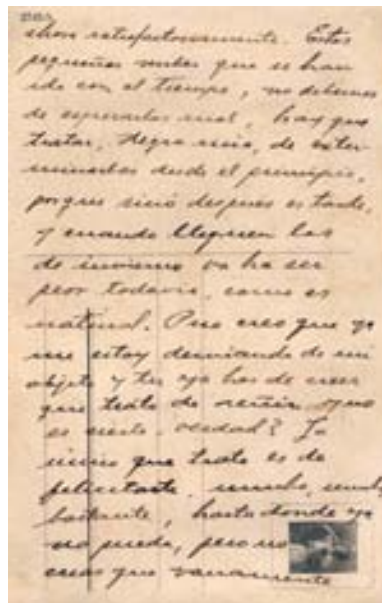 ahora satisfactoriamente. Estas
pequeñas nubes que se han
ido con el tiempo, no debemos
de esperarlas mal, hay que
tratar, Negra mía, de exter-
minarlas desde el principio,
porque sinó despues es tarde,
y cuando lleguen las
de invierno va ha ser
peor todavia, como es
natural. Pero creo que ya
me estoy desviando de mi
objeto y tu ya has de creer
que trato de reñir y no
es cierto, verdad? Lo
único que trato es de
felicitarte, mucho,
bastante, hasta donde ya
no pueda, pero no
creas que vanamente